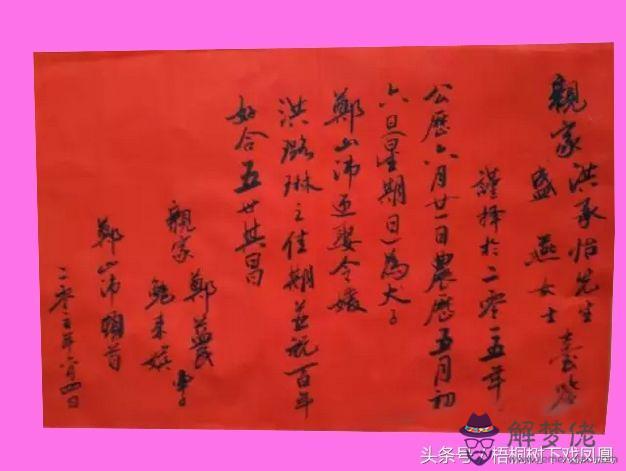 親家洪承怡先生
盛燕女士臺鉴
謹擇於二零一五年
公歷六月廿一日農歷五月初
六日星期日為大子
鄭山沛迎娶令嫒
洪璐琳之佳期並祝百年
好合五世其昌
親家鄭益民
鲍来嫔
鄭山沛頓首
二零一五年六月四日
解梦佬
www.jiemenglao.com
头条号/梧桐树下戏凤凰